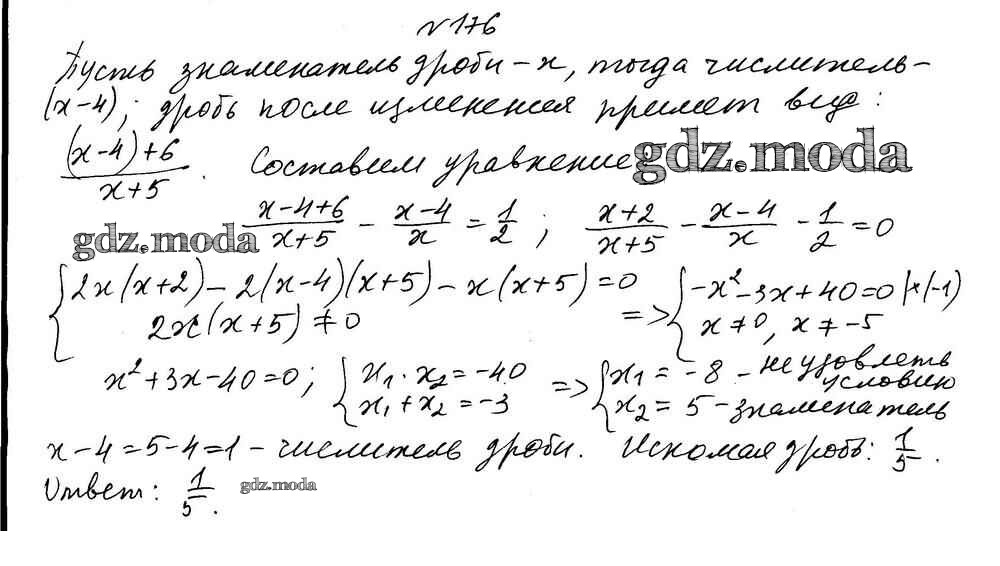 №176
Пусть знаменатель дроби – x, тогда числитель –
(x-4); дробь после изменения примет вид:
((x-4)+6)/(x+5). Составим уравнение: gdz.moda
(x-4+6)/(x+5) - (x-4)/x = 1/2; (x+2)/(x+5) - (x-4)/x - 1/2 = 0
gdz.moda
{2x(x+2) - 2(x-4)(x+5) - x(x+5) = 0 => {-x² - 3x + 40 = 0 |×(-1)
2x(x+5) ≠ 0 x ≠ 0, x ≠ -5
x² + 3x - 40 = 0; {x₁ · x₂ = -40 => {x₁ = -8 - не удовлеть условию
x₁ + x₂ = -3 x₂ = 5 - знаменатель
x - 4 = 5 - 4 = 1 - числитель дроби. Искомая дробь: 1/5.
Ответ: 1/5. gdz.moda